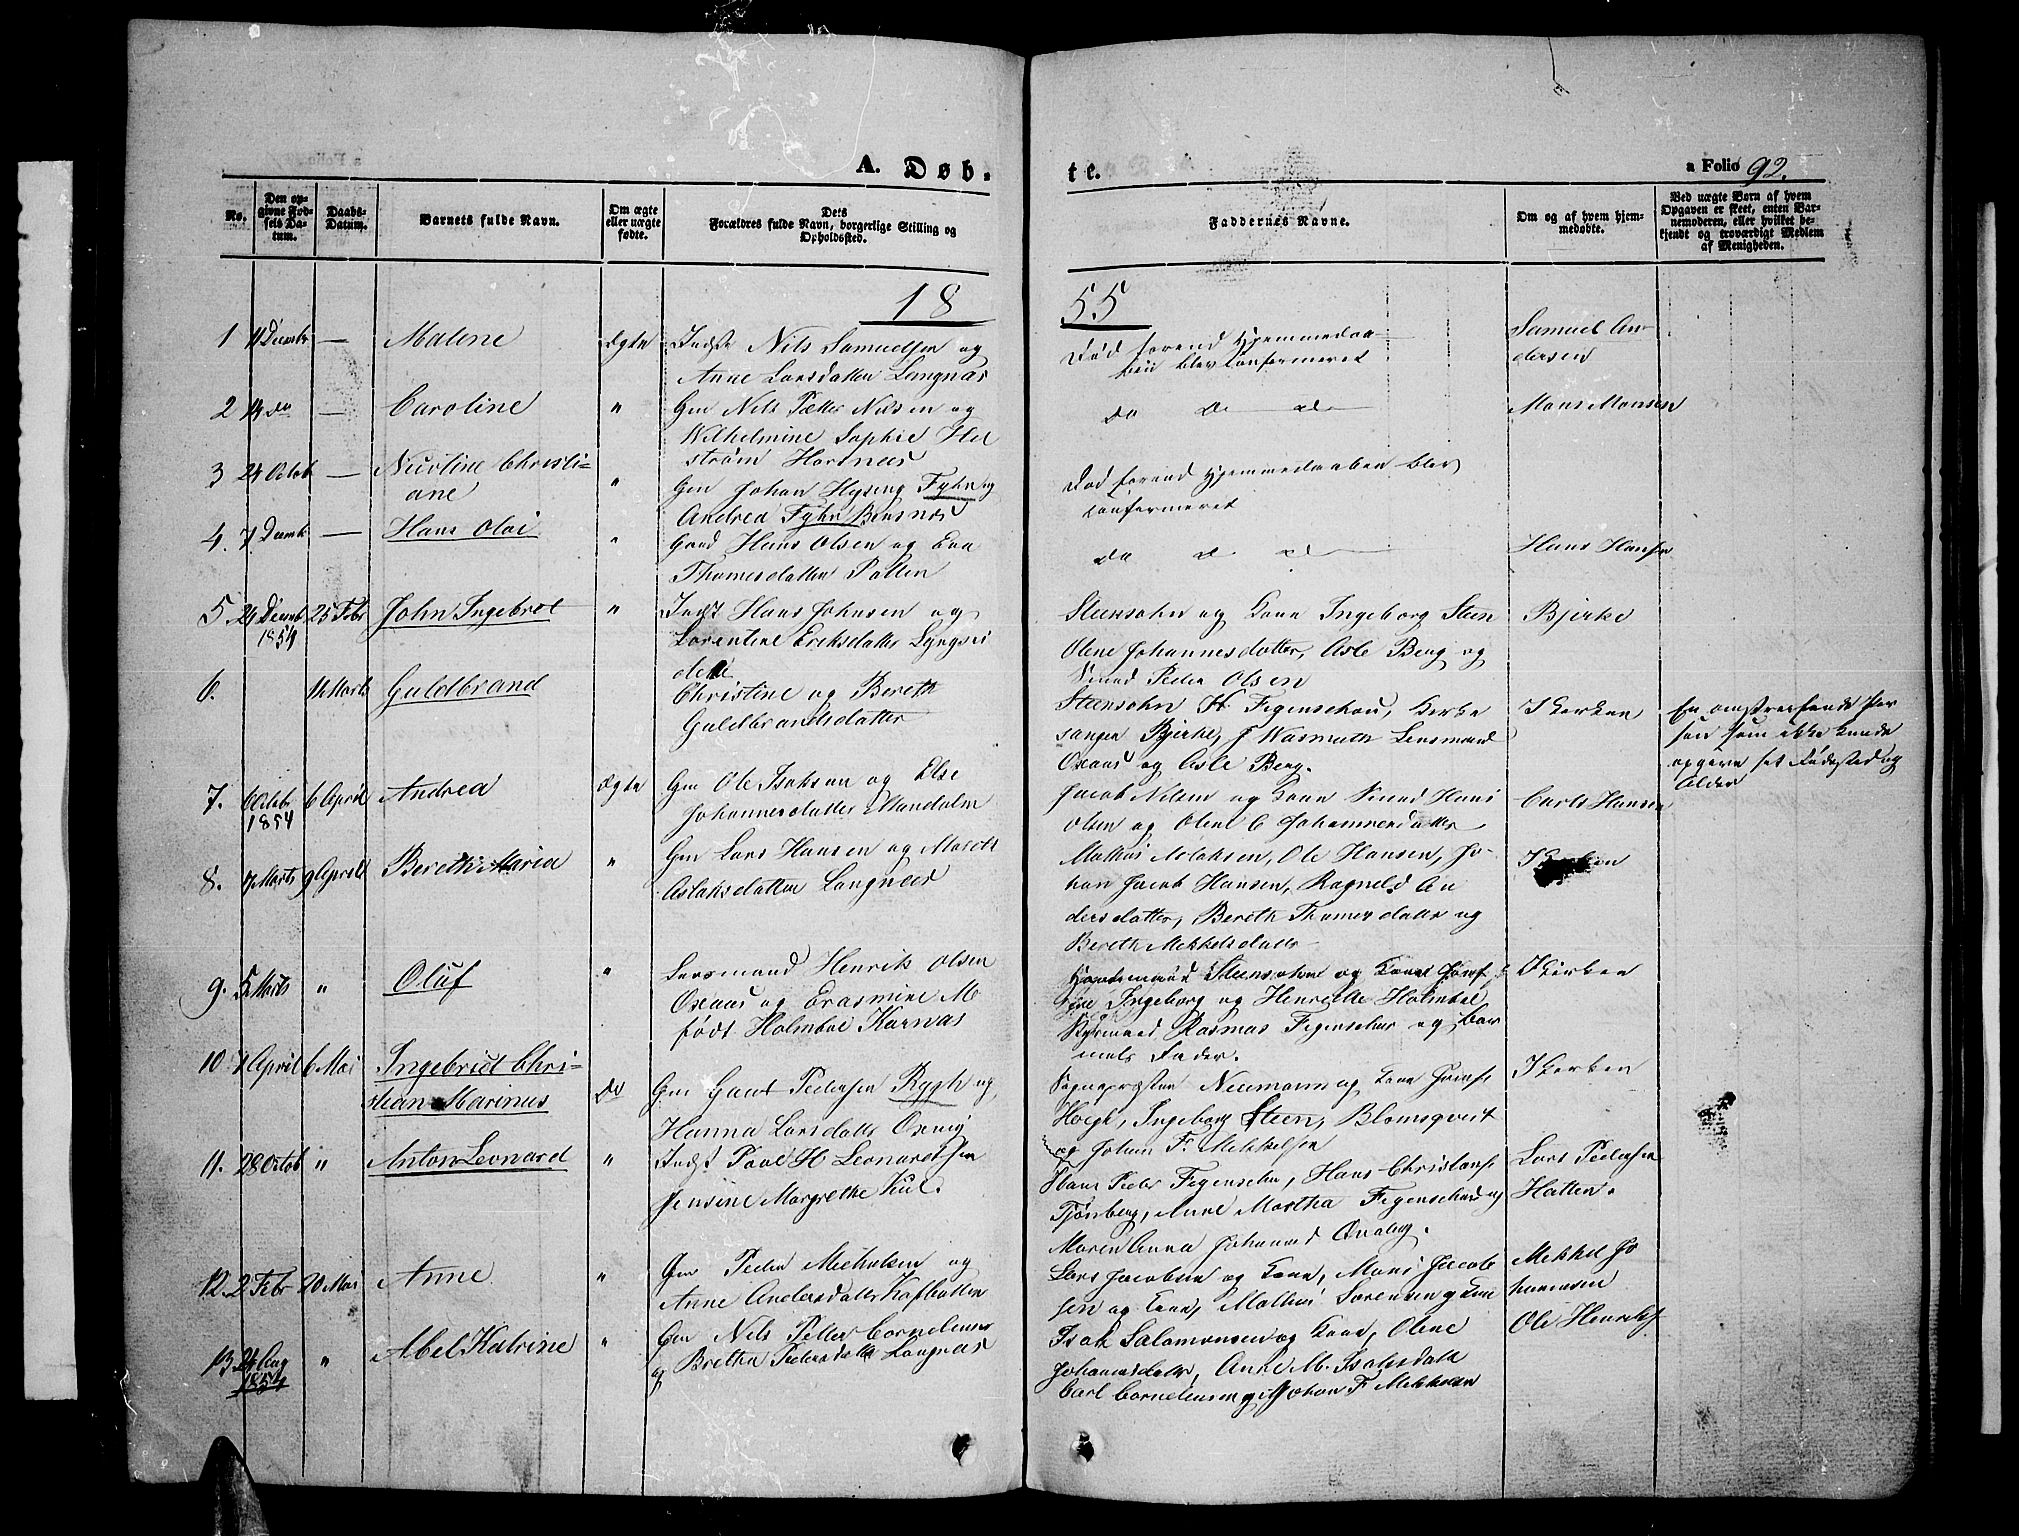 A. Døb.
te.
a Folio 92.
No.
Den op-
givne Fød-
sels Da-
tum.
Daabs-
Datum.
Barnets fulde Navn.
Om ægte
eller uægte
fødte.
Dets
Forældres fulde Navn, borgerlige Stilling og
Opholdssted.
Faddernes Navne.
Om og af hvem hjem-
medøbte.
Ved uægte Børn af hvem
Opgaven er skeet, enten Bar-
nemoderen, eller hvilket be-
kjendt og troværdigt Medlem
af Menigheden.
18 55
1 11 Decmbr — Malene Ægte Indst Nils Samuelsen og
Anne Larsdatter Langnæs
Død forend Hjemmedaa-
ben blev Confermeret
Samuel An-
dersen
2 14 do — Caroline " Gm Nils Petter Nilsen og
Wilhelmine Sophie Hel
strøm Hornæs
do d d
Mons Monsen
3 24 Octob — Nicoline Christi-
ane " Gm Johan Hysing Fyhn og
Andrea Fyhn Bensnes
Død forend Hjemmedaaben blev
Confermeret
4. 7 Decmb — Hans Olai " Gaard Hans Olsen og Eva
Thomesdatter Pollen
do d d
Hans Hansen
5. 24 Decmb
1854 25 Febr John Ingebrot " Indst Hans Johnsen og
Lorentine Eriksdatter Lyngsei
det
Steensohn og Kone Ingeborg Steen
Olene Johannesdatter, Asle Berg og
Smed Peder Olsen
Bjerke
6. 11 Marts Guldbrand Christine og Bereth
Guldbrandsdatter
Steensohn H Figenschou, Kirke
sanger Bjerke, J Wasmuth Lensmand
Oxaas og Asle Berg.
I Kirken
En omstreifende Per
son som ikke kunde
opgive sit Fødested og
Alder
7. 6 Octobr
1854 6 April Andrea Ægte Gm Ole Isaksen og Else
Johannesdatter Mandalen
Jacob Nilsen og Kone Smed Hans
Olsen og Olene C Johannesdatter
Carls Hansen
8. 7 Marts 9 April Bereth Maria " Gm Lars Hansen og Mareth
Aslaksdatter Langnæs
Mathis Aslaksen, Ole Hansen, Jo-
han Jacob Hansen, Ragnild An
dersdatter, Bereth Thomesdatter og
Bereth Mekkelsdatter
I Kirken
9. 5 Marts " Oluf " Lensmand Henrik Olsen
Oxaas og Erasmine M
født Holmboe Karnæs
Steensohn og Kone Jomf
Ingeborg og Henriette Holmboe,
Rasmus Figenschou og Bar
nets Fader.
I Kirken
10. 1 April 6 Mai Ingebrigt Chri-
stian Marinus Do Gm Gunt Pedersen Rygh og
Hanna Larsdatter Oxvig
Sognepræsten Neumann og Kone Jomf
Hoegh, Ingeborg Steen, Blomqvist
og Johan F. Mekkelsen
I Kirken
11. 28 Octob " Anton Leonard " Indst Poul H Leonardtsen
Jensine Margrethe Kiil.
Hans Peder Figenschou, Hans Christians
Tjønberg, Anne Martha Figenschou og
Maren Anna Johannes
Lars Pedersen
Hatten.
12. 2 Febr 20 Mai Anne " Gm Peder Michalsen og
Anne Andersdatter Kofhatten
Lars Jacobsen og Kone, Mons Jacob
sen og Kone, Mathis Sorensen og Kone
Mekkel Jo
hannesen
13. 24 Aug
1854 " Abel Katrine " Gm Nils Petter Cornelius
og Bretha Pedersdatter Langnæs
Isak Salamonsen og Kone, Olene
Johannesdatter, Anne M. Isaksdatter
Carl Corneliusen og Johan F Mekkelsen
Ole Henriks